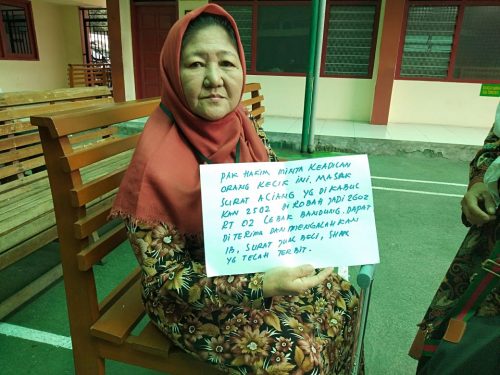 PAK HAKIM MINTA KEADILAN
ORANG KECIK INI. MASAK
SURAT ACIANG YG DI KABUL
KAN 2502 DI ROBAH JADI 2602
RT 02 LEBAK BANDUNG. DAPAT
DI TERIMA DAN MENGALAHKAN
IB, SURAT JUAL BELI, SHM
YG TELAH TERBIT.